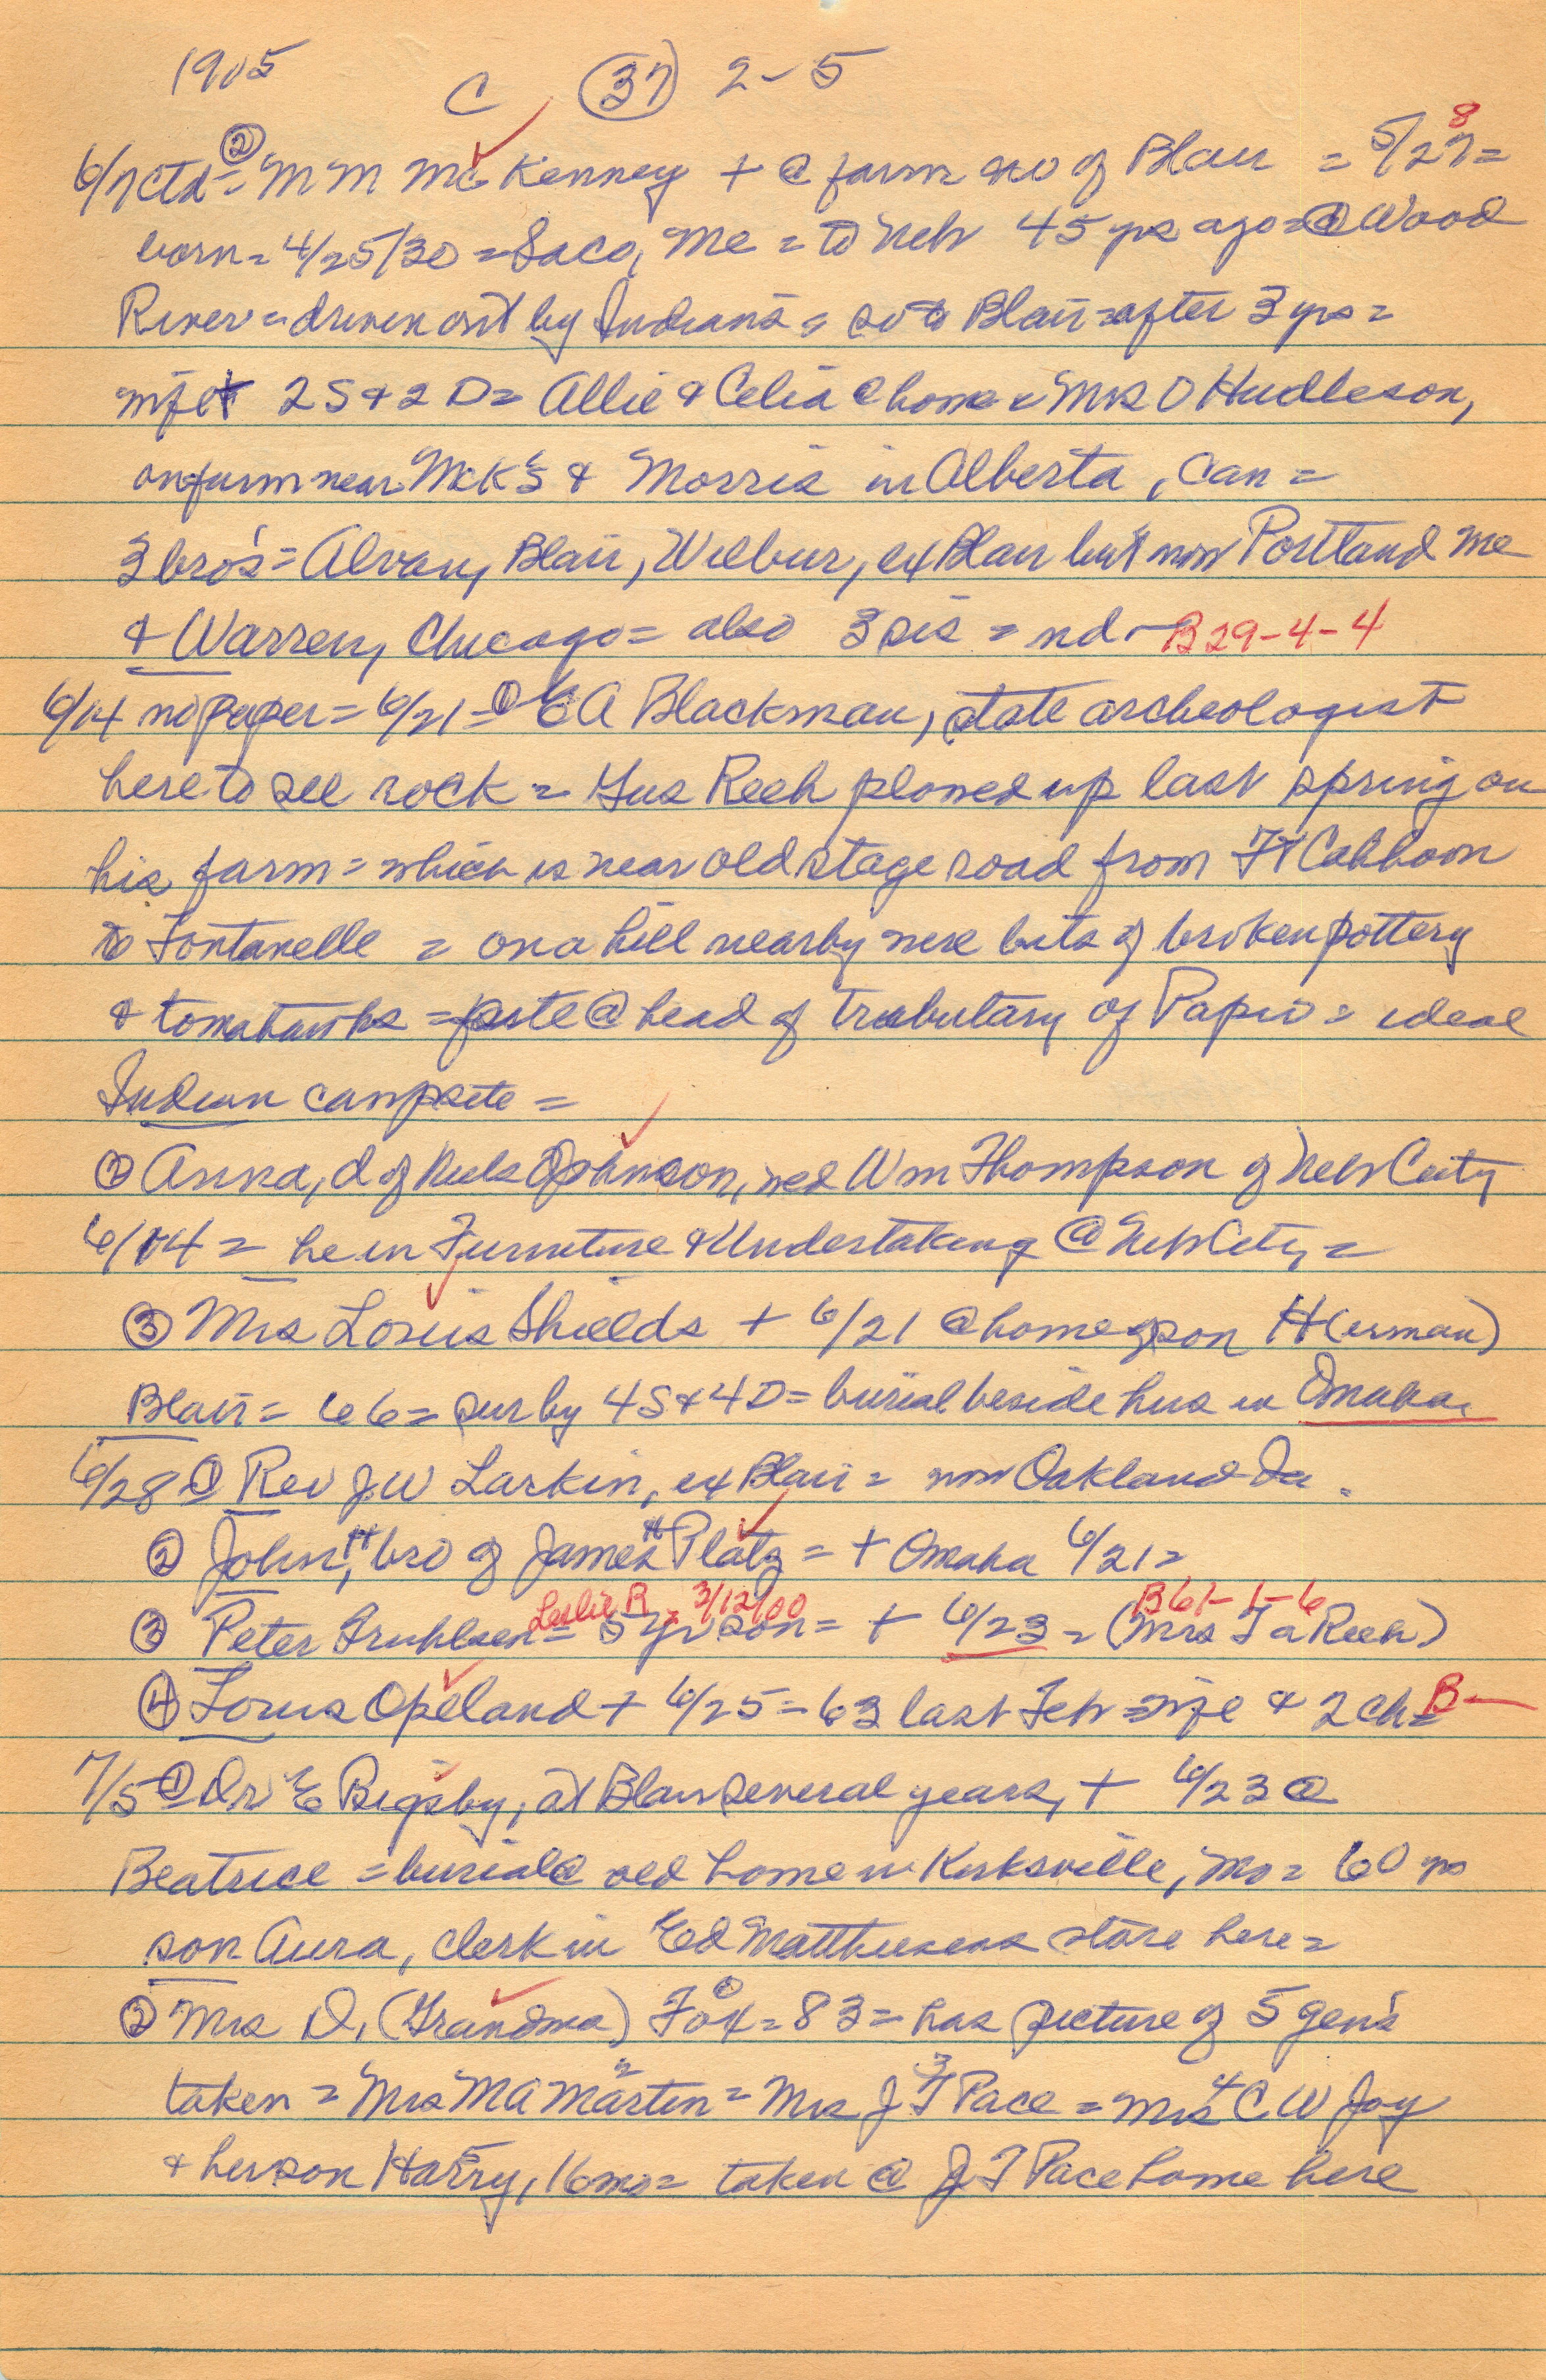 1905 C (37) 2-5
6/7 ctd = ② M M McKenney + @ farm nw of Blair = 5/27 = 8
born = 4/25/30 = Saco, Me = to Neb 45 yrs ago = @ Wood
River = driven out by Indians = so to Blair = after 3 yrs =
wife + 2 S & 2 D = Allie & Celia @ home & Mrs O Hudleson,
on farm near McK's & Morris in Alberta, Can =
3 bro's = Alvan, Blair, Wilbur, ex Blair but now Portland Me
& Warren, Chicago = also 3 sis = nd - B29-4-4
6/14 no paper = 6/21 = ① E A Blackman, state archeologist
here to see rock = Gus Reeh plowed up last spring on
his farm = which is near old stage road from Ft Calhoon
to Fontanelle = on a hill nearby were bits of broken pottery
& tomahawks = site @ head of tributary of Papio = ideal
Indian campsite =
② Anna, d of Neels Johnson, wed Wm Thompson of Neb City
6/14 = he in Furniture & Undertaking @ Neb City =
③ Mrs Louis Shields + 6/21 @ home of son H(erman)
Blair = 66 = sur by 4 S & 4 D = burial beside hus in Omaha
6/28 ① Rev J W Larkin, ex Blair = now Oakland Ia.
② John H, bro of James H Platz = + Omaha 6/21 =
Leslie R = 3/12/00 B61-1-6
③ Peter Fruhlsen = 5 yr son = + 6/23 = (Mrs F A Reeh)
④ Louis Opeland + 6/25 = 63 last Feb = wife & 2 ch = B—
7/5 ① Dr E Bigsby, at Blair several years, + 6/23 @
Beatrice = burial @ old home in Kirksville, Mo = 60 yrs
son Aura, clerk in Ed Matthiesens store here =
② Mrs D, (Grandma) Fox ① = 83 = has picture of 5 gen's
taken = Mrs M A Martin 2 = Mrs J F Pace 3 = Mrs C W Joy 4
& her son Harry, 5 16 mo = taken @ J F Pace home here